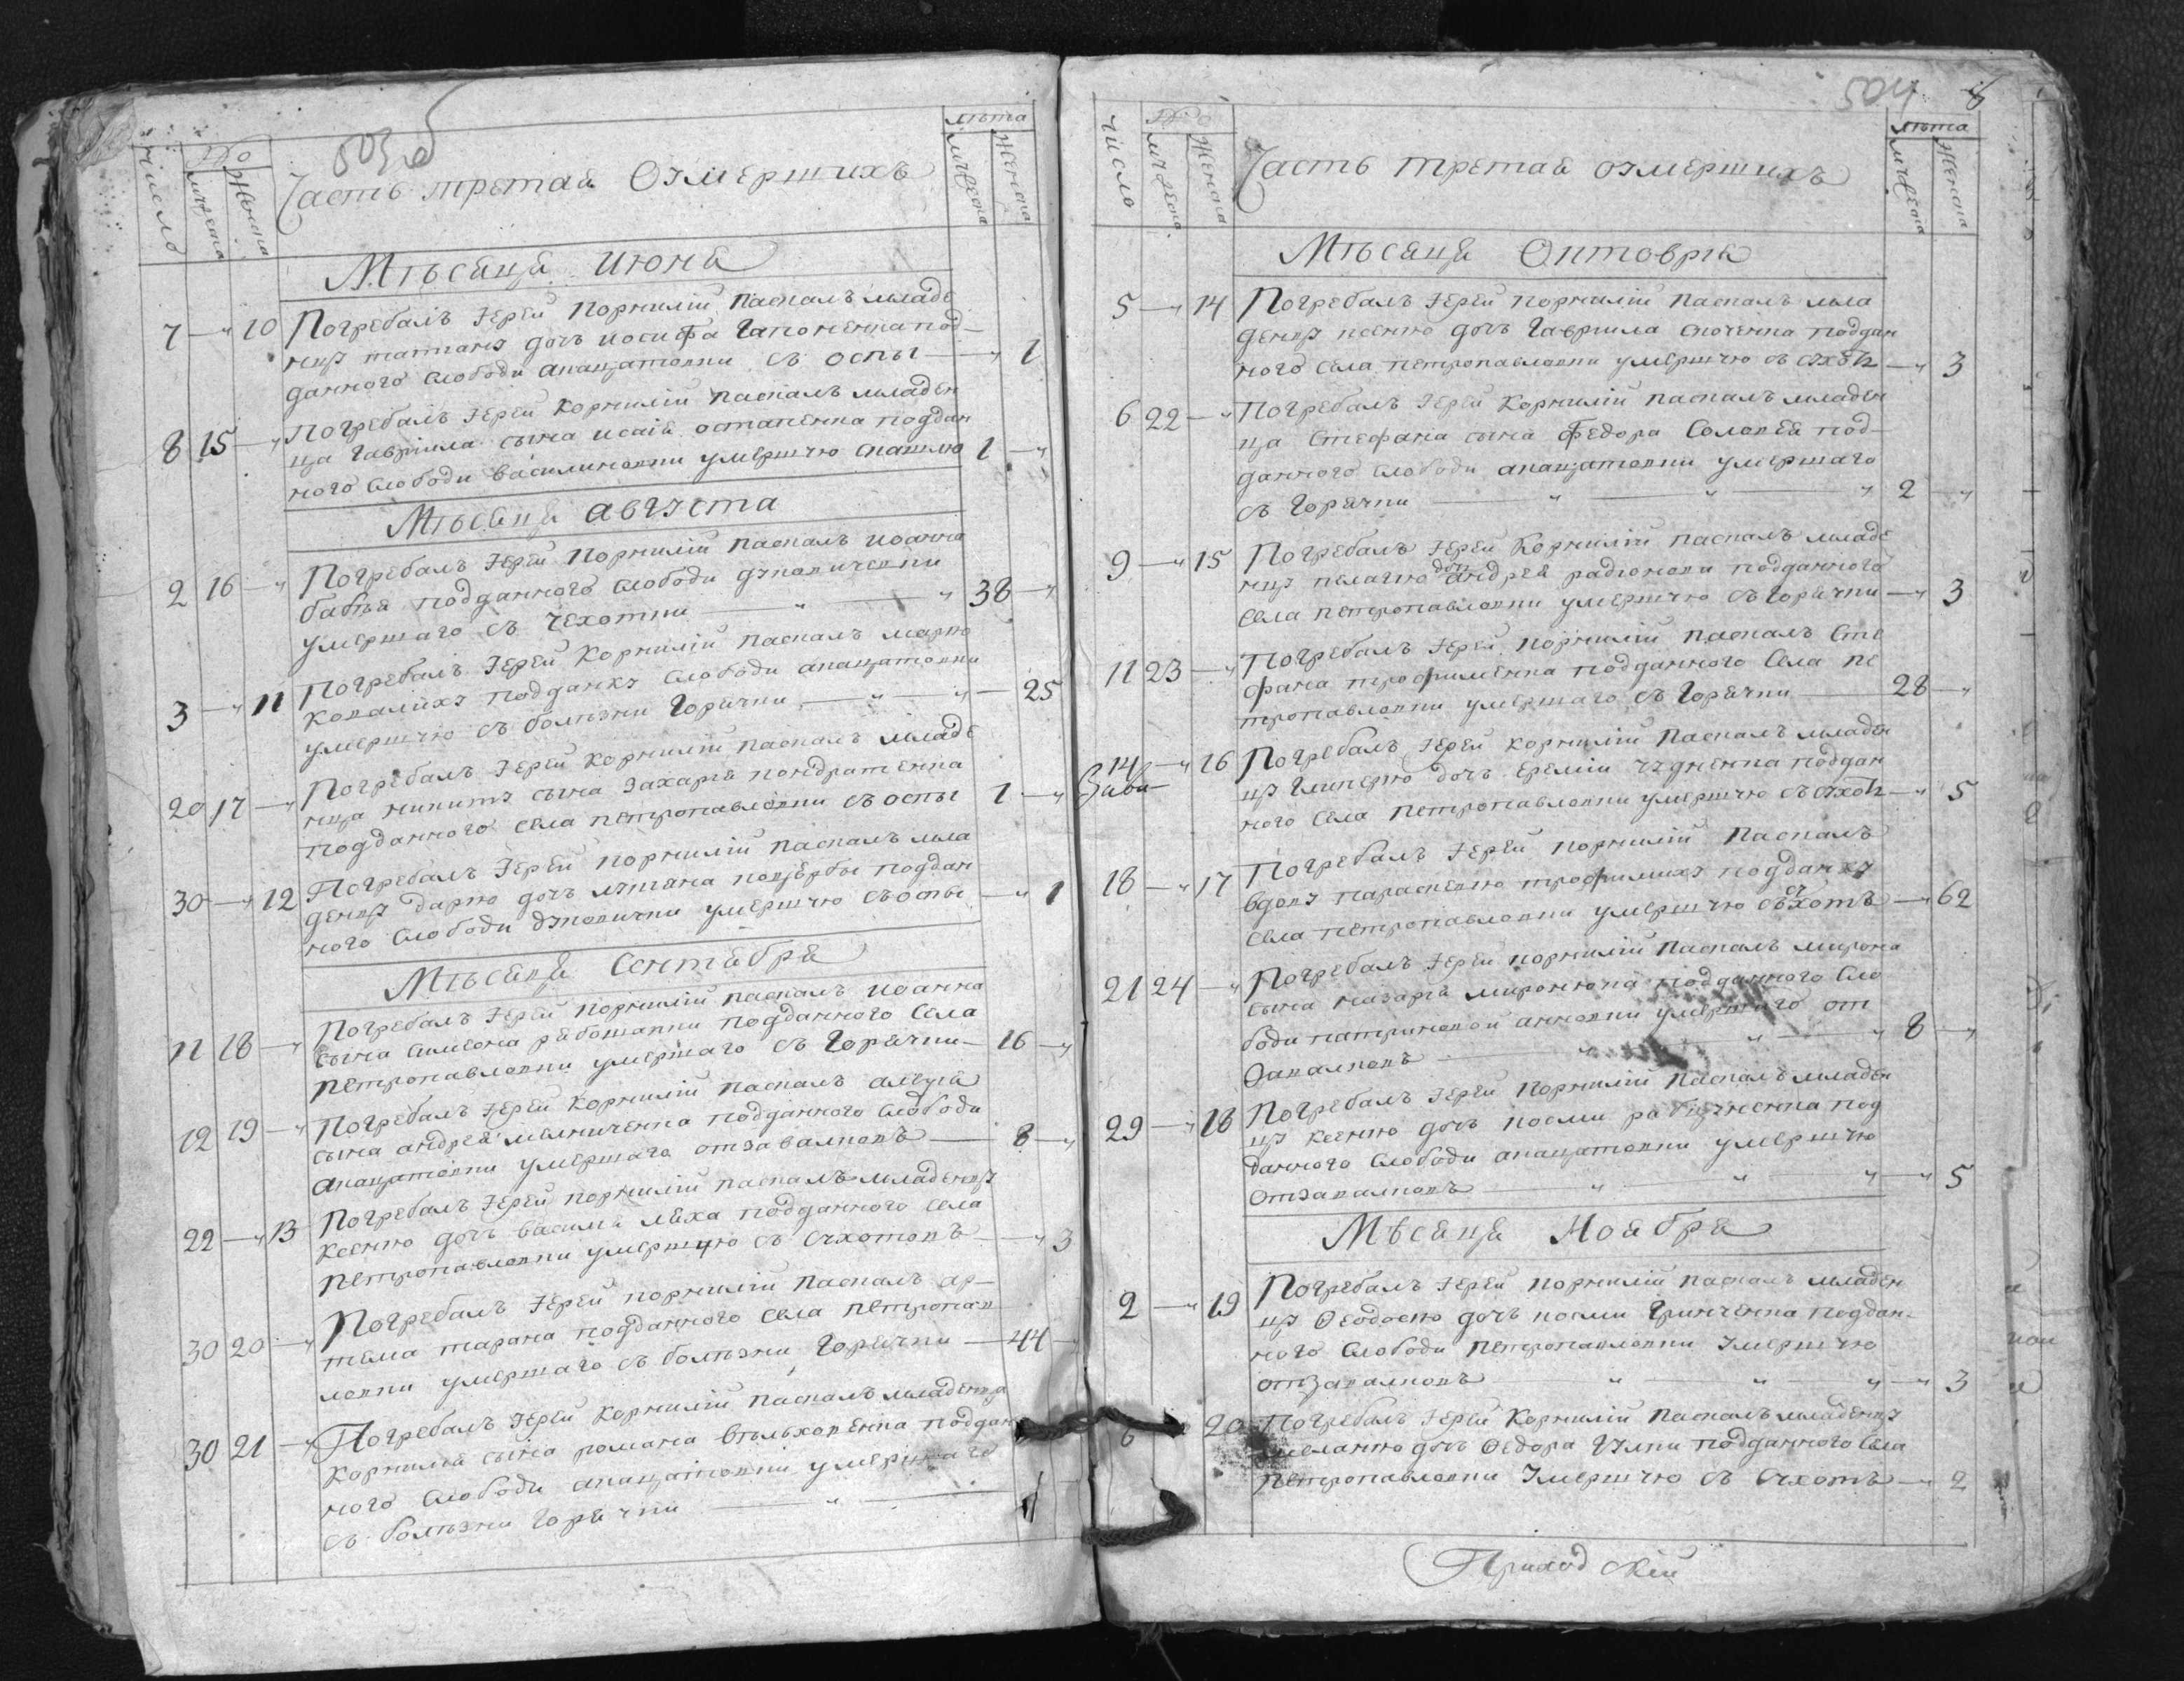 503 об
Число
№
мужеска
Женска
Часть третая Оумершихъ
лѣта
мужеска
Женска
Мѣсяца Июня
7 — „ 10 Погребалъ Іерей Корнилій Паскалъ младе
нцу татиану дочъ иосифа Гапоненка под-
данного слободи анацатовки съ оспы — „ 1
8 15 — „ Погребалъ Іерей Корнилій Паскалъ младен
ца Гавріила сына исаія остапенка поддан
ного слободи василиновки умершую скашлю 1 — „
Мѣсяца августа
2 16 — „ Погребалъ Іерей Корнилій Паскалъ иоанна
бабѣя подданного слободи духовичевки
умершаго съ чехотки — „ — „ 38 — „
3 — „ 11 Погребалъ Іерей Корнилій Паскалъ марию
ковалиху подданку слободи анацатовки
умершую съ болѣзни Горячки — „ — „ — 25
20 17 — „ Погребалъ Іерей Корнилій Паскалъ младе
нца никиту сына Захария кондратенка
подданного села петропавловки съ оспы 1 — „
30 — „ 12 Погребалъ Іерей Корнилій Паскалъ мла
денцу дарию дочъ лукяна коцербы поддан
ного слободи духовички умершую съ оспы — „ 1
Мѣсяца Сентября
11 18 — „ Погребалъ Іерей Корнилій Паскалъ иоанна
сына симеона рябошапки подданного села
петропавловки умершаго съ Горячки — 16 — „
12 19 — „ Погребалъ Іерей Корнилій Паскалъ алеѯія
сына андрея мелниченка подданного слободи
анацатовки умершаго отзавалковъ — 8 — „
22 — „ 13 Погребалъ Іерей Корнилій Паскалъ младенцу
ксению дочъ василия ляха подданного села
петропавловки умершую съ сухотовъ — „ 3
30 20 — „ Погребалъ Іерей Корнилій Паскалъ ар-
тема тарана подданного села петропав
ловки умершаго съ болѣзни Горячки — 44 —
30 21 — „ Погребалъ Іерей Корнилій Паскалъ младенца
Корнилия сына романа поддан
ного слободи анацатовки умершаго
съ болѣзни Горячки — „ — 1
504
8
Число
№
мужеска
Женска
Часть третая оумершихъ
лѣта
мужеска
Женска
Мѣсяца Октоврія
5 — „ 14 Погребалъ Іерей Корнилій Паскалъ мла
денцу ксению дочъ Гавриила поддан
ного села петропавловки умершую съ сухотъ — „ 3
6 22 — „ Погребалъ Іерей Корнилій Паскалъ младен
ца Стефана сына Федора Соловея под-
данного слободи анацатовки умершаго
съ Горячки — „ — „ — „ 2 — „
9 — „ 15 Погребалъ Іерей Корнилій Паскалъ младе
нцу пелагию доч андрея радионова подданного
села петропавловки умершую съ Горячки — „ 3
11 23 — „ Погребалъ Іерей Корнилій Паскалъ Сте
фана трофименка подданного села пе
тропавловки умершаго съ Горячки — 28 — „
14 — „ 16 Погребалъ Іерей Корнилій Паскалъ младен
цу Гликерию дочъ еремии поддан
ного села петропавловки умершую съ сухотъ — „ 5
18 — „ 17 Погребалъ Іерей Корнилій Паскалъ
вдову параскевию трофимиху подданку
села петропавловки умершую съ сухотъ — „ 62
21 24 — „ Погребалъ Іерей Корнилій Паскалъ мирона
сына назария миронюка подданного сло
боди катриновой анновки умершаго от
Завалковъ — „ — „ — „ 8 — „
29 — „ 18 Погребалъ Іерей Корнилій Паскалъ младен
цу ксению дочъ косми под
данного слободи анацатовки умершую
отзавалковъ — „ — „ — „ — „ 5
Мѣсяца Ноября
2 — „ 19 Погребалъ Іерей Корнилій Паскалъ младен
цу Ѳеодосию дочъ косми Гринченка поддан-
ного слободи петропавловки умершую
отзавалковъ — „ — „ — „ — „ 3
6 20 Погребалъ Іерей Корнилій Паскалъ младенцу
меланию дочъ Ѳедора Гулки подданного села
петропавловки умершую съ сухотъ — „ 2
Приходскій